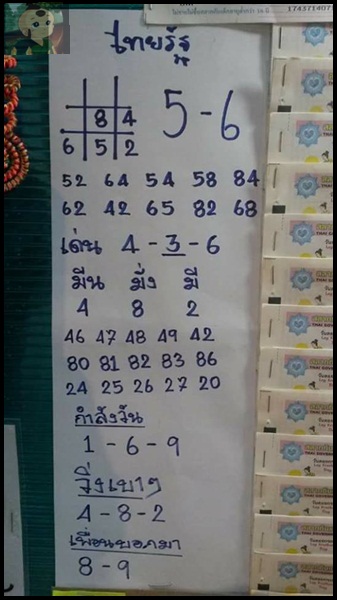 ไทยรัฐ
8 4 5 - 6
6 5 2
52 64 54 58 84
62 42 65 82 68
เด่น 4 - 3 - 6
มีน มั่ง มี
4 8 2
46 47 48 49 42
80 81 82 83 86
24 25 26 27 20
กำลังวัน
1 - 6 - 9
วิ่งเบาๆ
4 - 8 - 2
เพื่อนบอกมา
8 - 9